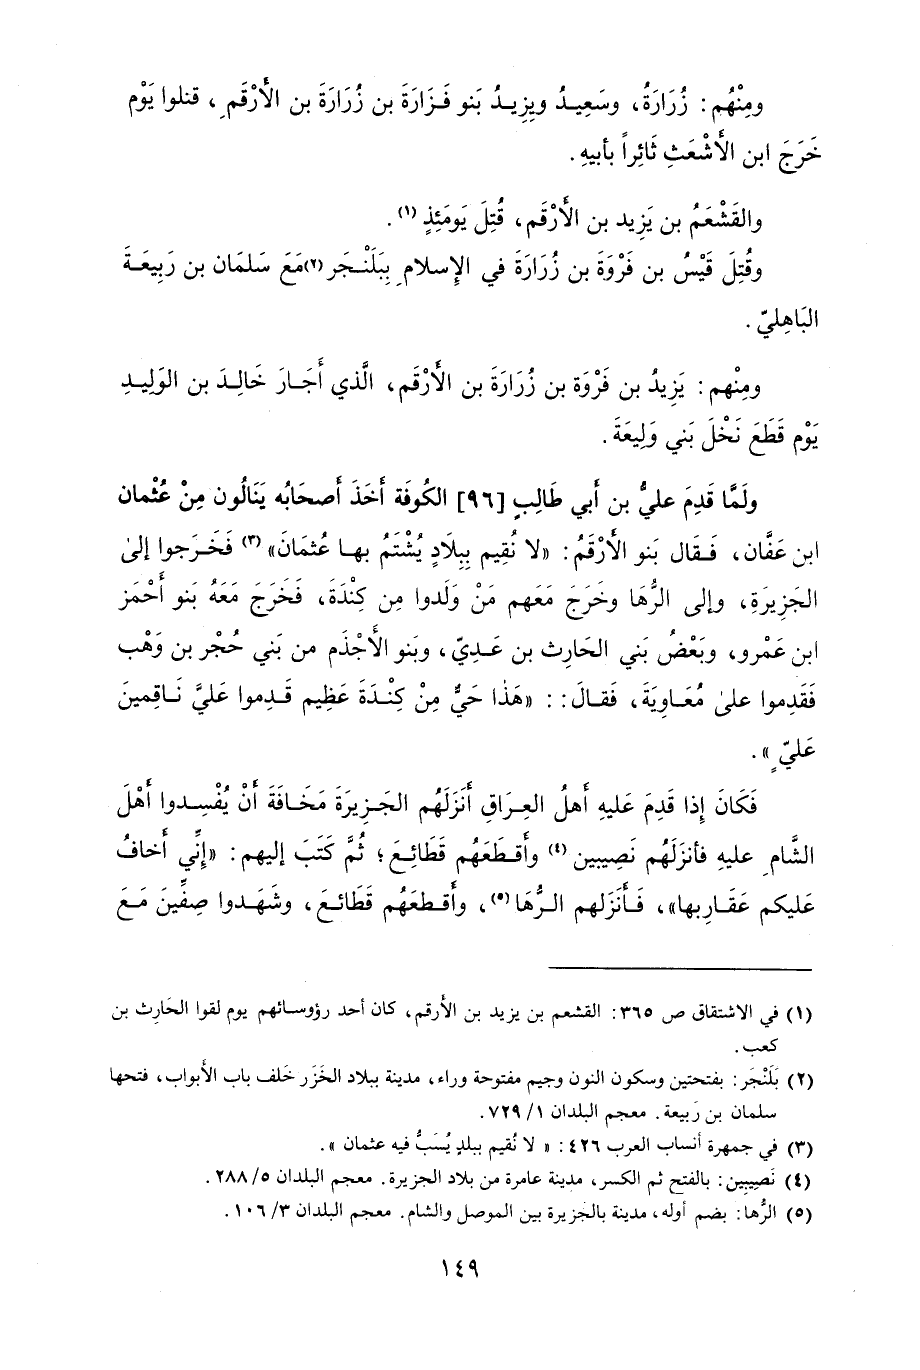 ومِنْهُم : زُرَارَةُ، وسَعِيدُ ويزيدُ بَنو فَزَارَةَ بن زُرَارَةَ بن الأَرْقَمِ ، قتلوا يَوْم
خَرَجَ ابن الأَشْعَثِ ثَائِراً بأبيهِ .
والقَشْعَمُ بن يَزِيد بن الأَرْقَم، قُتِلَ يَومَئِذٍ (١) .
وقُتِلَ قَيْسُ بن فَرْوَةَ بن زُرَارَةَ في الإسلامِ بِبَلَنْجَر (٢)مَعَ سَلمَان بن رَبِيعَـة
البَاهِليّ .
ومِنْهم : يَزِيدُ بن فَرْوَة بن زُرَارَةَ بن الأَرْقَم، الَّذي أَجَارَ خَالِدَ بن الوَلِيدِ
يَوْم قَطَعَ نَخْلَ بَني وَلِيعَةَ .
ولَمَّا قَدِمَ عليُّ بن أبي طَالِبٍ [٩٦] الكُوفَة أَخَذَ أَصحَابُه يَنَالُون مِنْ عُثْمان
ابن عَفَّان، فَقال بَنو الأَرْقَمُ : «لا نُقِيم بِبِلَادٍ يُشْتَمُ بها عُثمَانَ» (٣) فَخَرجوا إلىٰ
الجَزِيرَةِ، وإلى الرُّهَا وخَرجَ مَعَهم مَنْ وَلَدوا مِن كِنْدَةَ، فَخَرجَ مَعَهُ بَنو أَحْمَز
ابن عَمْرو، وبَعْضُ بَني الحَارِث بن عَدِيّ، وبَنو الأَجْذَم من بَني حُجْر بن وَهْب
فَقَدِموا علىٰ مُعَاوِيَةَ، فَقَالَ : : «هَذا حَيٌّ مِنْ كِنْدَةَ عَظِيم قَدِموا عَليَّ نَاقِمينَ
عَليّ ٍ» .
فَكَانَ إذا قَدِمَ عَليهِ أَهلُ العِراقِ أَنْزَلَهُم الجَزِيرَةَ مَخَافَةَ أَنْ يُفْسِدوا أَهْلَ
الشَّامِ عليهِ فأنزَلَهُم نَصِيبين (٤) وأَقطَعَهُم قَطَائِعَ ؛ ثُمَّ كَتَبَ إليهم : «إنِّي أَخافُ
عَليكم عَقَارِبها»، فَأَنزَلهم الرُّهَا (٥)، وأَقطَعَهُم قَطَائعَ، وشَهَدوا صِفِّينَ مَعَ
(١) في الاشتقاق ص ٣٦٥ : القشعم بن يزيد بن الأرقم، كان أحد رؤوسائهم يوم لقوا الحَارِث بن
كعب .
(٢) بَلَنْجَر : بفتحتين وسكون النون وجيم مفتوحة وراء، مدينة ببلاد الخَزَر خَلف باب الأبواب، فتحها
سلمان بن رَبيعة . معجم البلدان ١/ ٧٢٩ .
(٣) في جمهرة أنساب العرب ٤٢٦ : « لا نُقيم ببلدٍ يُسَبُّ فيه عثمان » .
(٤) نَصِيبين : بالفتح ثم الكسر، مدينة عامرة من بلاد الجزيرة . معجم البلدان ٥/ ٢٨٨ .
(٥) الرُّها : بضم أوله، مدينة بالجزيرة بين الموصل والشام . معجم البلدان ٣/ ١٠٦ .
١٤٩